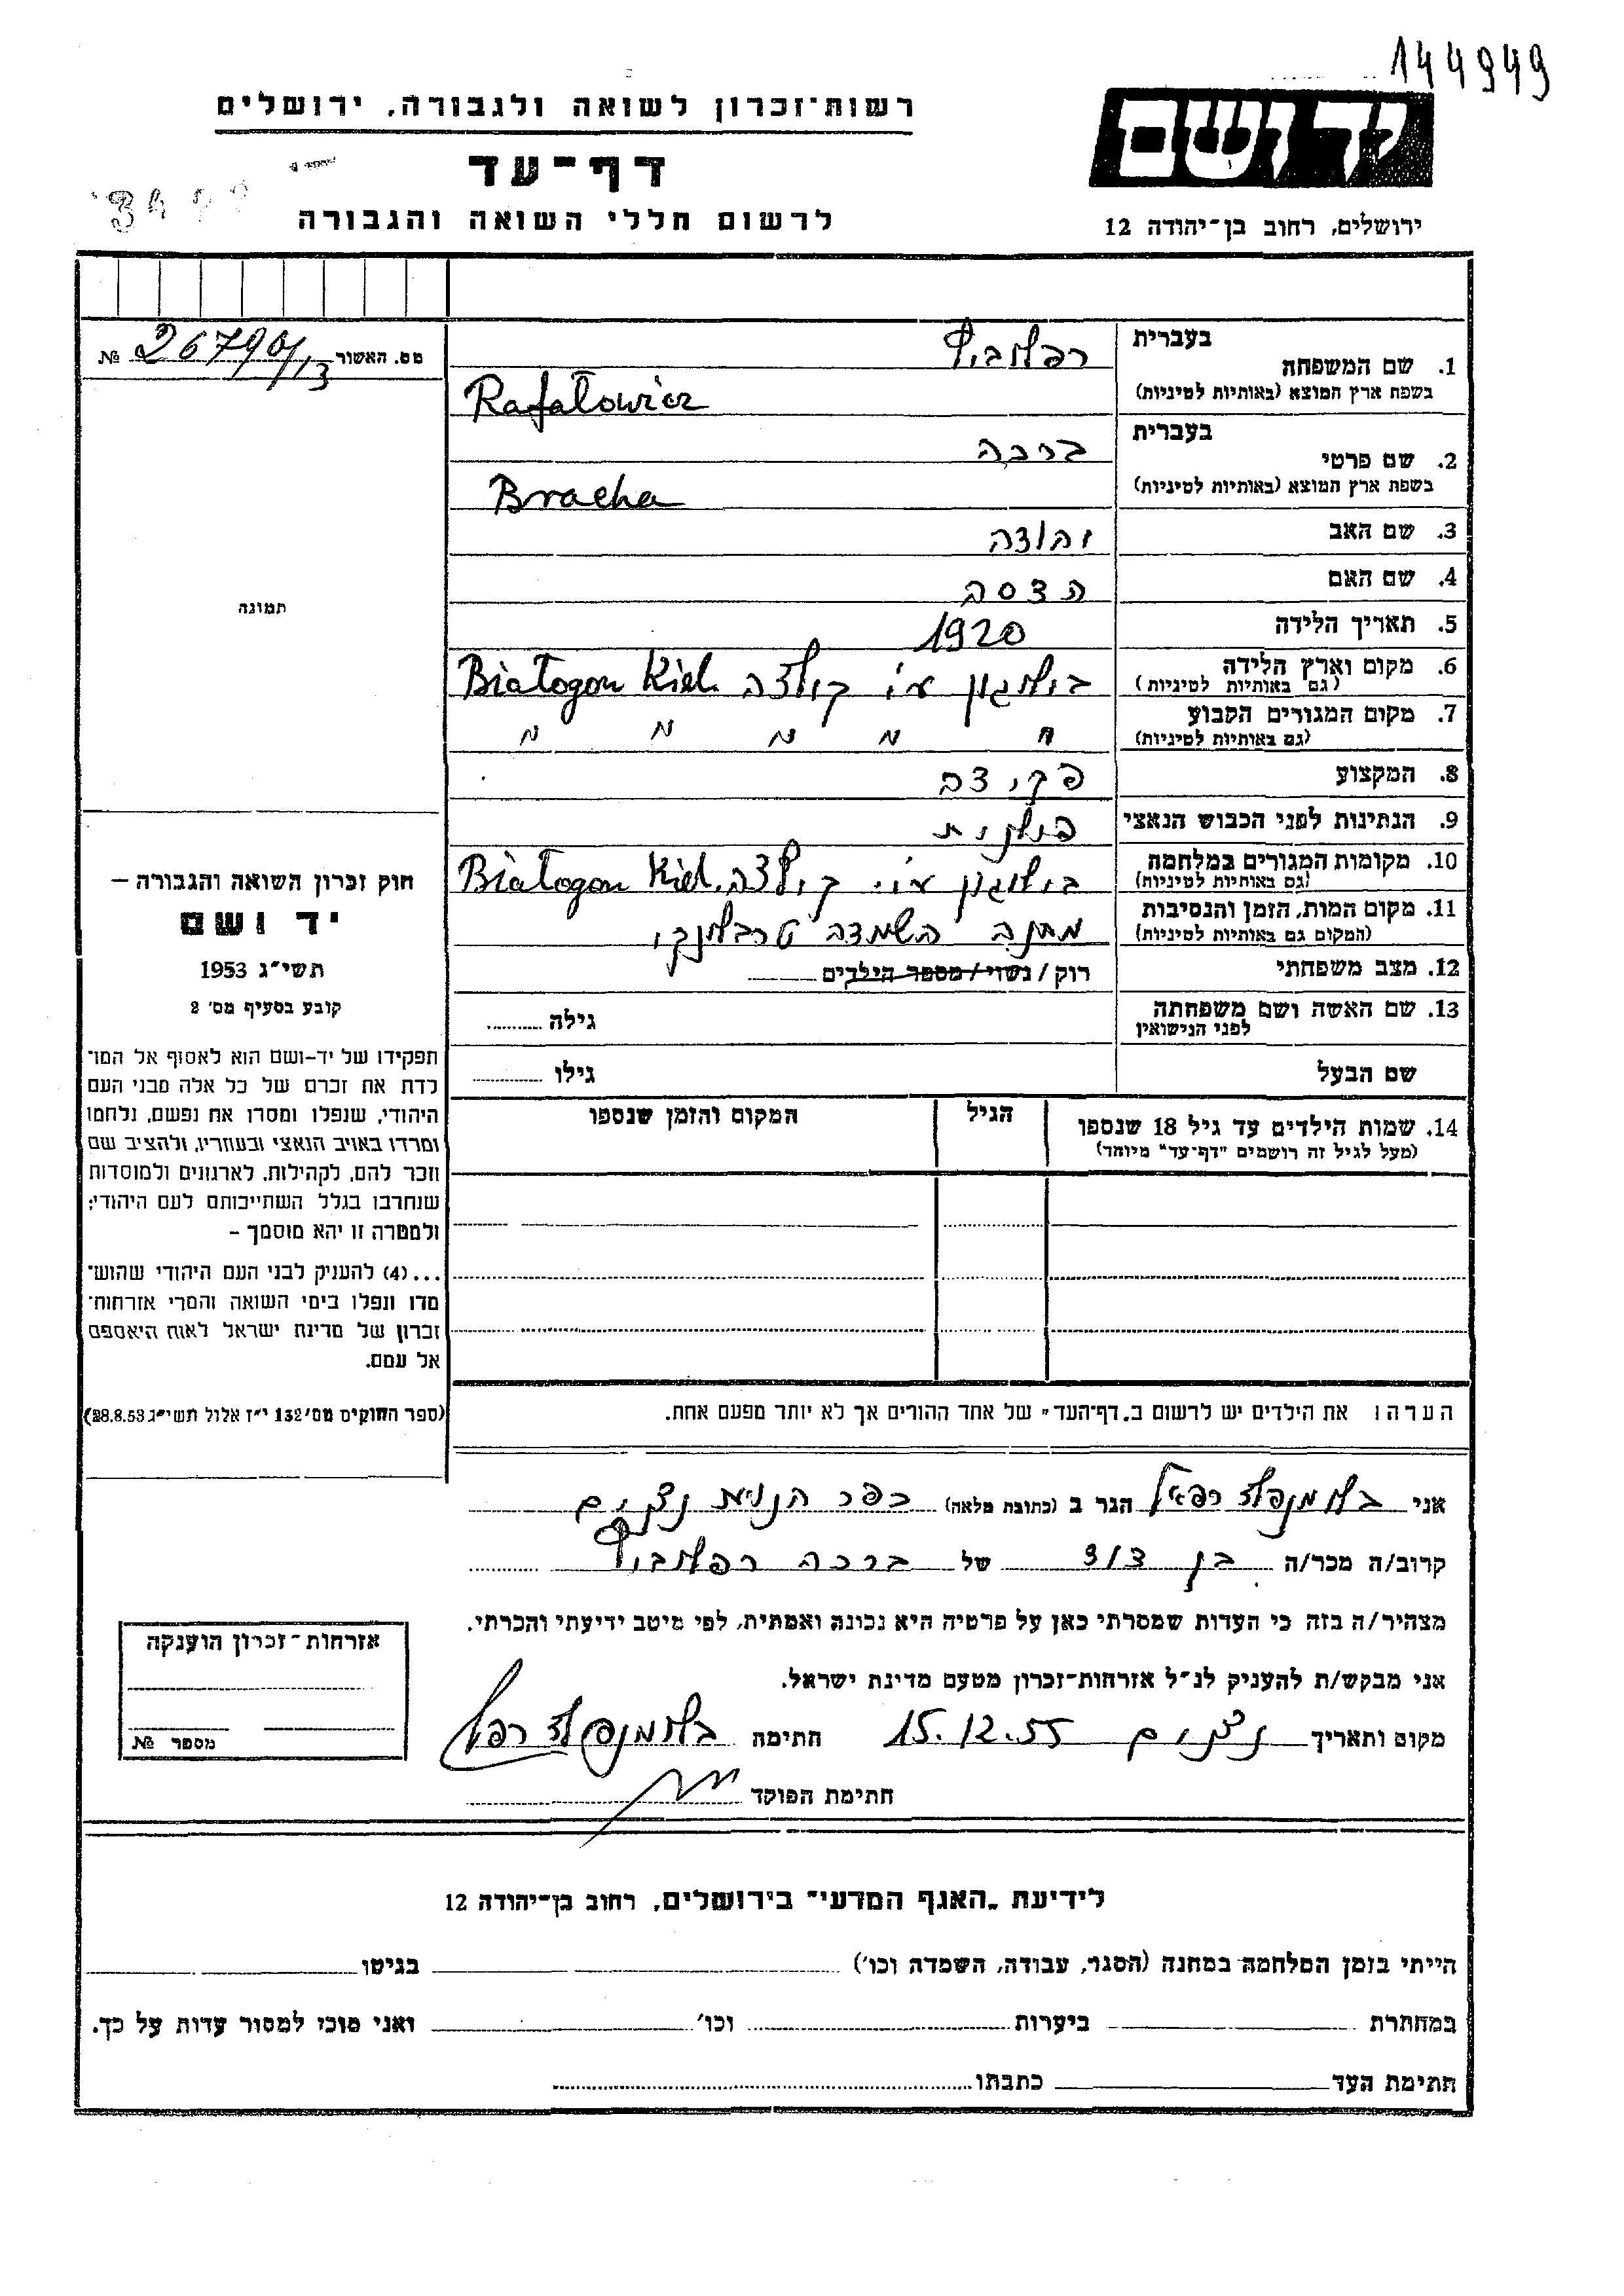 144949
רשות־זכרון לשואה ולגבורה, ירושלים
יד ושם
דף־עד
לרשום חללי השואה והגבורה
ירושלים, רחוב בן־יהודה 12
מס. האשור 26790/13 №
בעברית רפלוביץ
1. שם המשפחה
בשפת ארץ המוצא (באותיות לטיניות) Rafałowicz
בעברית ברכה
2. שם פרטי
בשפת ארץ המוצא (באותיות לטיניות) Bracha
3. שם האב יהודה
4. שם האם הדסה
5. תאריך הלידה 1920
6. מקום וארץ הלידה בילוגון ע"י קילצה Białogon Kiel.
(גם באותיות לטיניות)
7. מקום המגורים הקבוע " " " " "
(גם באותיות לטיניות)
8. המקצוע פקידה
9. הנתינות לפני הכבוש הנאצי פולנית
10. מקומות המגורים במלחמה בילוגון ע"י קילצה Białogon Kiel.
(גם באותיות לטיניות)
11. מקום המות, הזמן והנסיבות מחנה השמדה טרבלינקי
(המקום גם באותיות לטיניות)
12. מצב משפחתי רוק / נשוי / מספר הילדים
13. שם האשה ושם משפחתה
לפני הנישואין גילה
שם הבעל גילו
14. שמות הילדים עד גיל 18 שנספו
(מעל לגיל זה רושמים "דף־עד" מיוחד)
הגיל
המקום והזמן שנספו
הערה: את הילדים יש לרשום ב„דף־העד" של אחד ההורים אך לא יותר מפעם אחת.
תמונה
חוק זכרון השואה והגבורה –
יד ושם
תשי"ג 1953
קובע בסעיף מס' 2
תפקידו של יד-ושם הוא לאסוף אל המו־
לדת את זכרם של כל אלה מבני העם
היהודי, שנפלו ומסרו את נפשם, נלחמו
ומרדו באויב הנאצי ובעוזריו, ולהציב שם
וזכר להם, לקהילות, לארגונים ולמוסדות
שנחרבו בגלל השתייכותם לעם היהודי;
ולמטרה זו יהא מוסמך –
...(4) להעניק לבני העם היהודי שהוש־
מדו ונפלו בימי השואה והמרי אזרחות־
זכרון של מדינת ישראל לאות היאספם
אל עמם.
(ספר החוקים מס' 132 י"ז אלול תשי"ג 28.8.53)
אני בלומנפלד רפאל הגר ב (כתובת מלאה) כפר הנוער ניצנים
קרוב/ה מכר/ה בן דוד של ברכה רפלוביץ
מצהיר/ה בזה כי העדות שמסרתי כאן על פרטיה היא נכונה ואמתית, לפי מיטב ידיעתי והכרתי.
אני מבקש/ת להעניק לנ"ל אזרחות־זכרון מטעם מדינת ישראל.
מקום ותאריך ניצנים 15.12.55 חתימה בלומנפלד רפאל
חתימת הפוקד
אזרחות־זכרון הוענקה
מספר №
לידיעת „האגף המדעי" בירושלים, רחוב בן־יהודה 12
הייתי בזמן המלחמה במחנה (הסגר, עבודה, השמדה וכו') בגיטו
במחתרת ביערות וכו' ואני מוכן למסור עדות על כך.
חתימת העד כתבתו